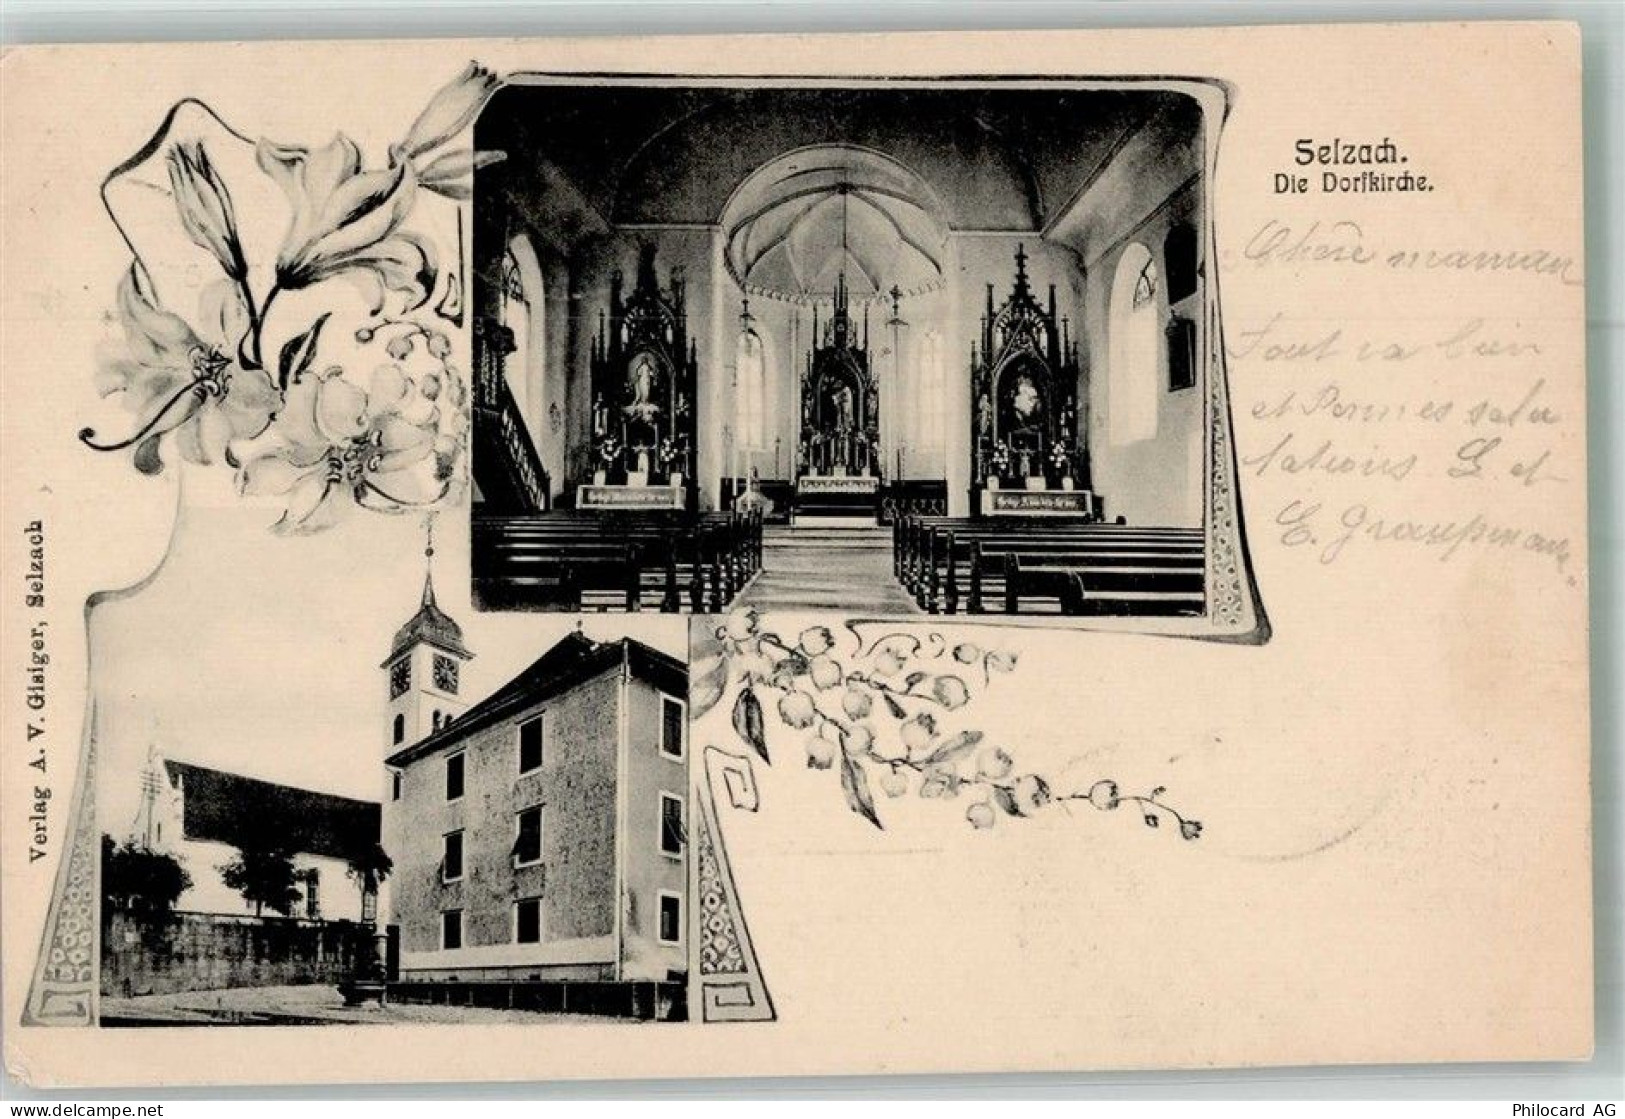 Selzach.
Die Dorfkirche.
Chère maman
Tout va bien
et salu
tations G. et
E.
Verlag A. V. Gisiger, Selzach
delcampe.net
Philocard AG